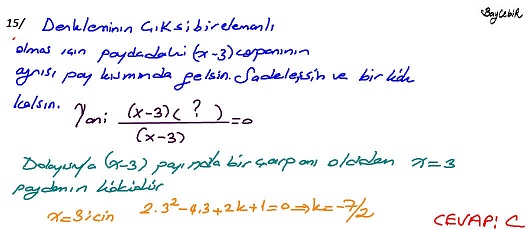 BayÇebik
15/ Denkleminin Ç.K.sı bir elemanlı
olması için paydadaki (x-3) çarpanının
aynısı pay kısmında gelsin. Sadeleşsin ve bir kök
kalsın. Yani (x-3)( ? ) / (x-3) = 0
Dolayısıyla (x-3) payında bir çarpanı olduğundan x=3
payın köküdür
x=3 için 2.3²-4.3+2k+1=0 ⇒ k=-7/2
CEVAP: C